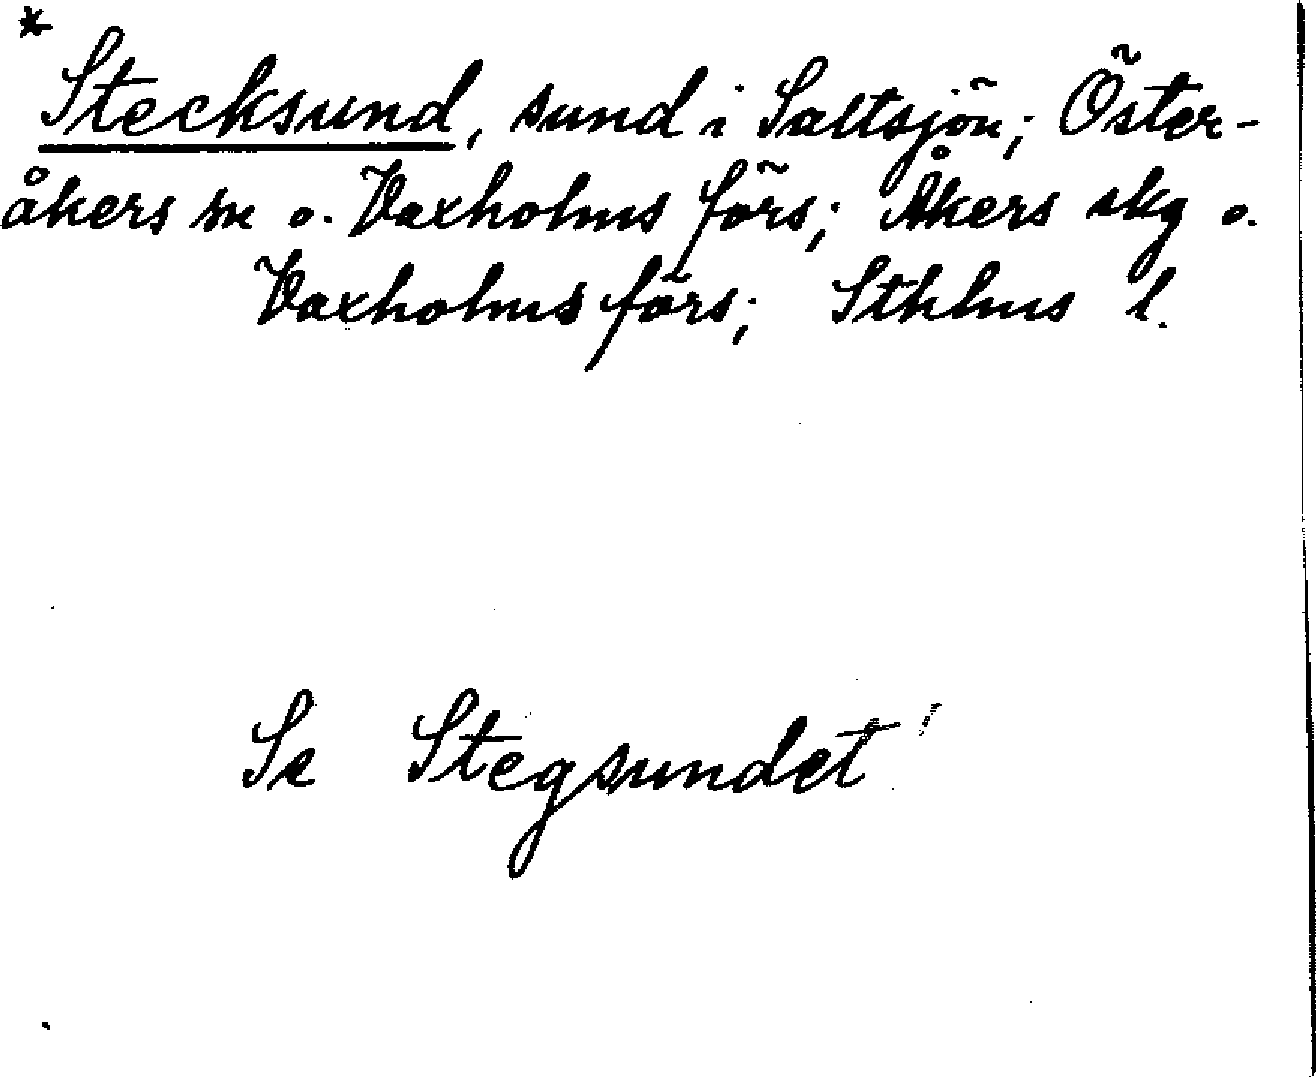 *
Stecksund, sund i Saltsjön; Öster-
åkers sn o. Vaxholms förs; Åkers skg o.
Vaxholms förs; Sthlms l.
Se Stegsundet!